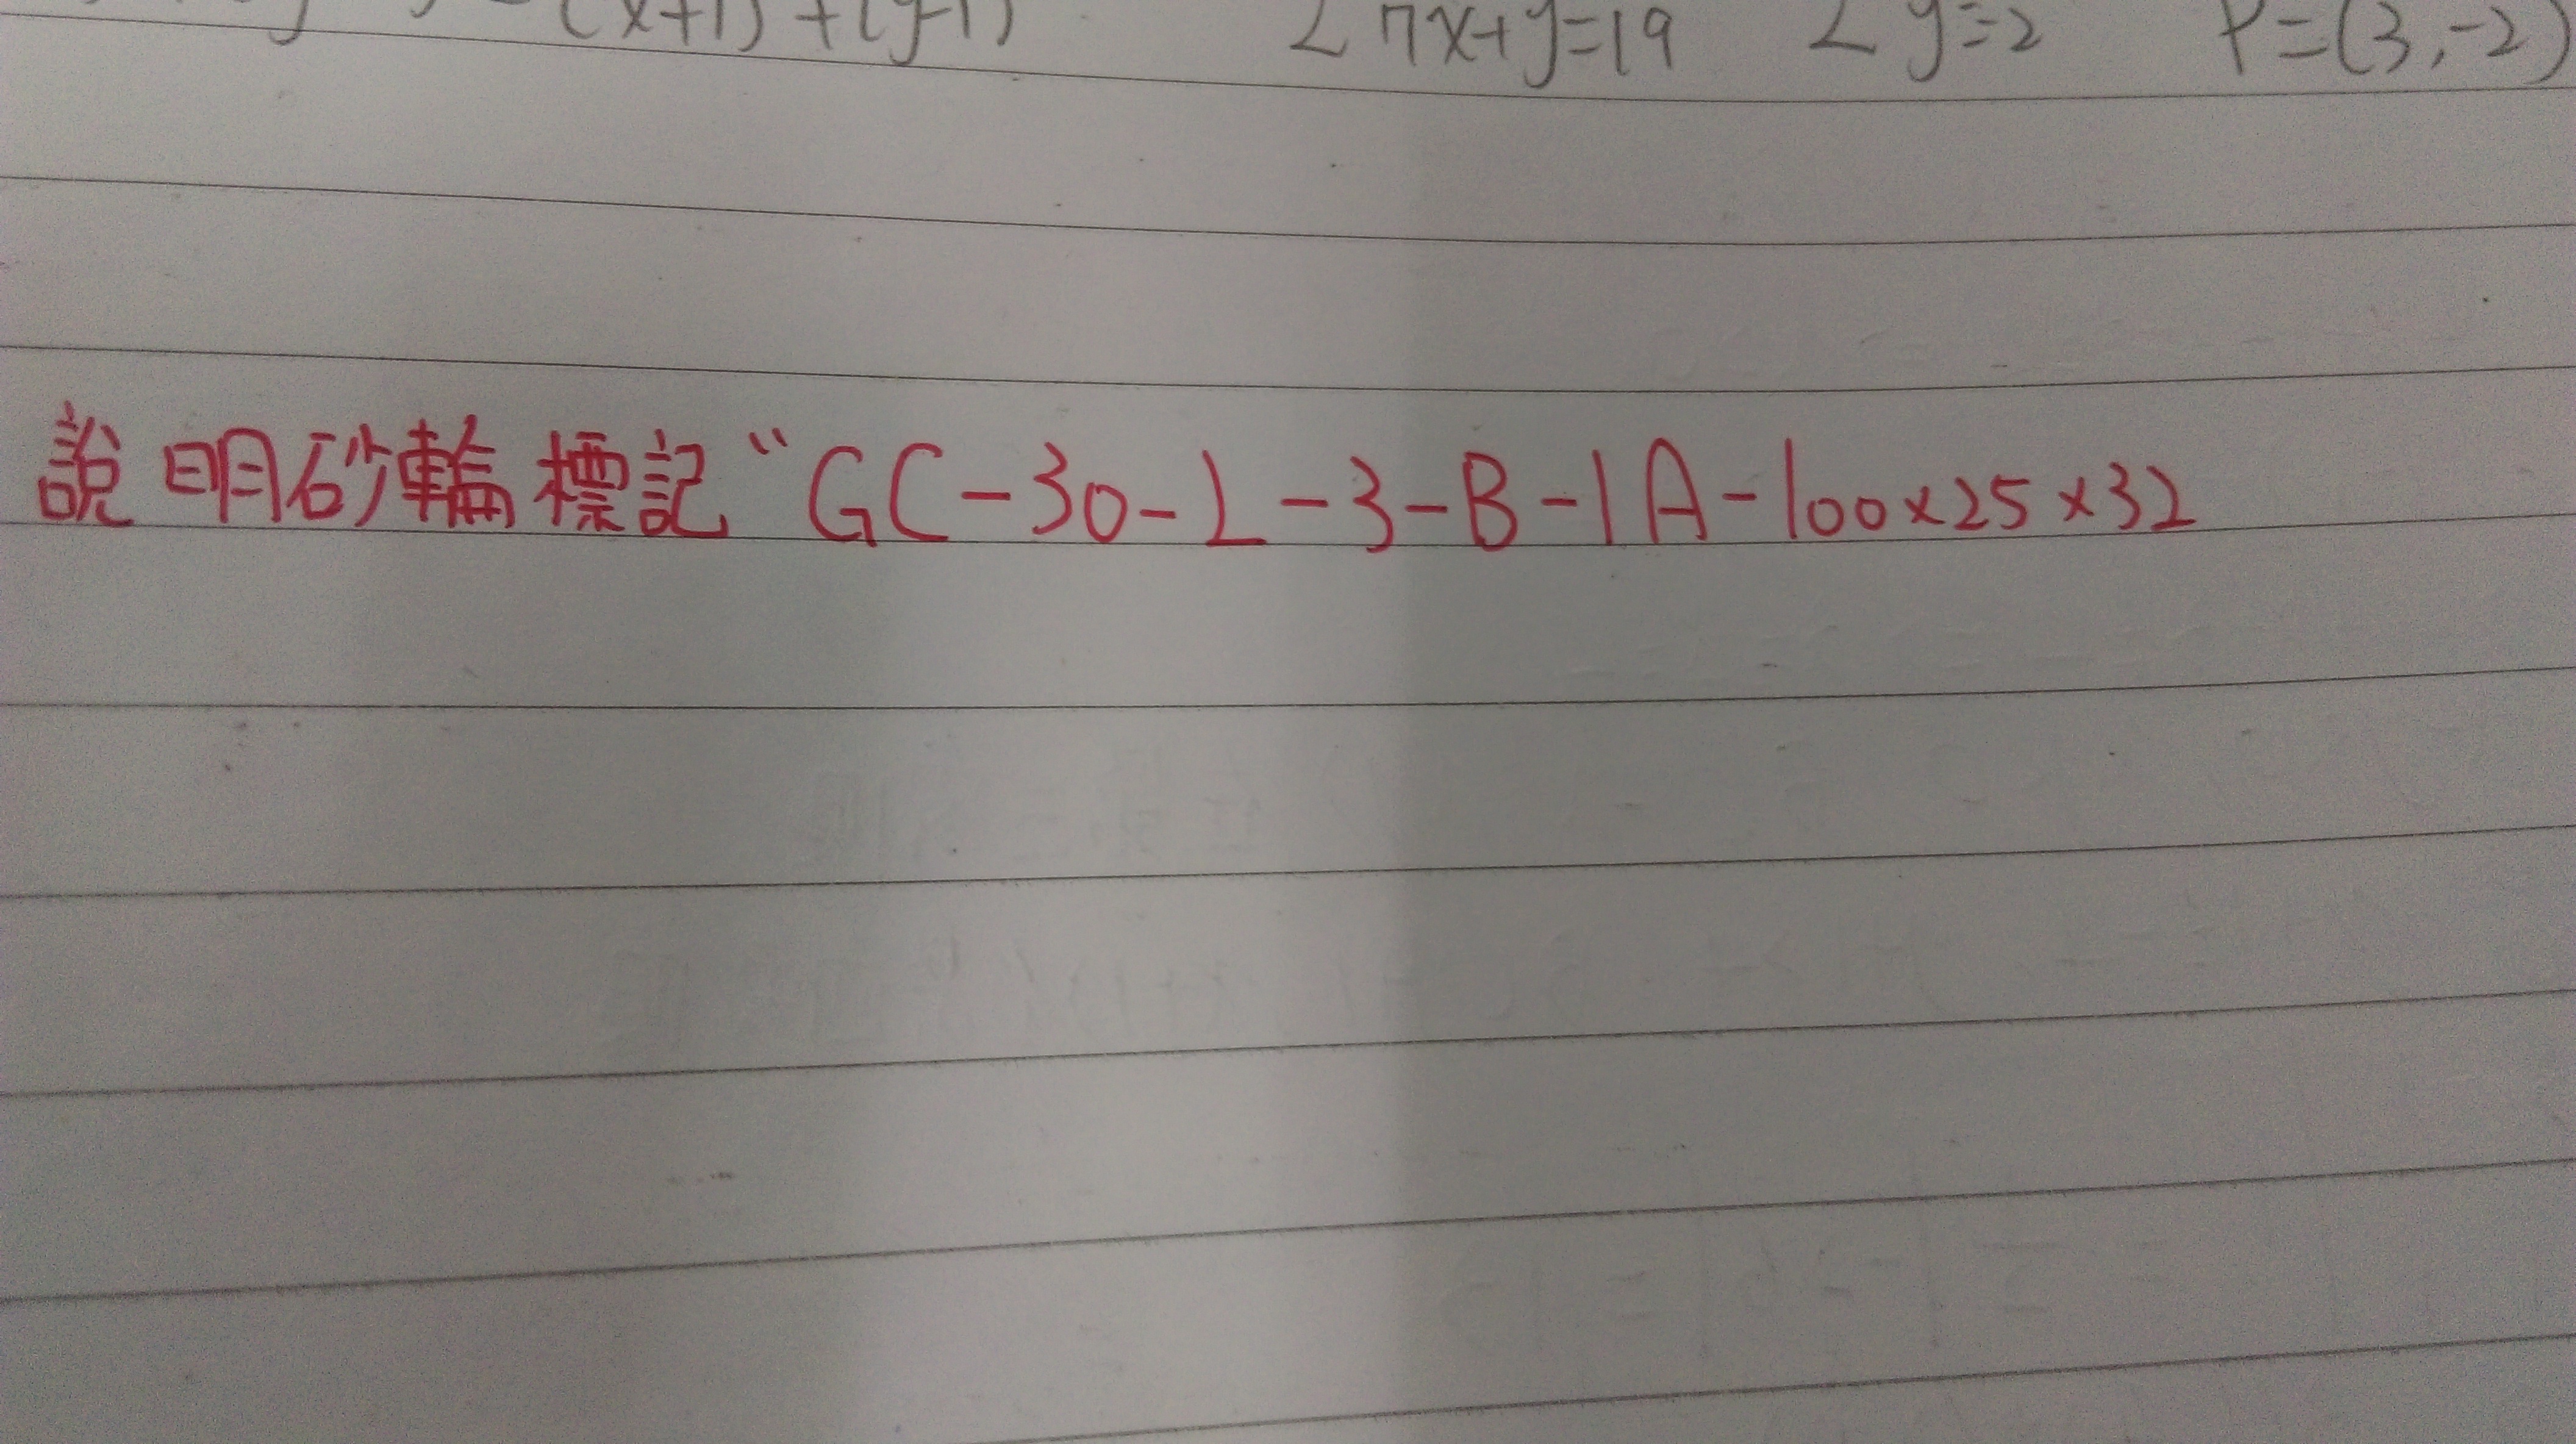 (x+1)+(y-1) 7x+y=19 y=-2 P=(3,-2)
說明砂輪標記“GC-30-L-3-B-1A-100×25×32